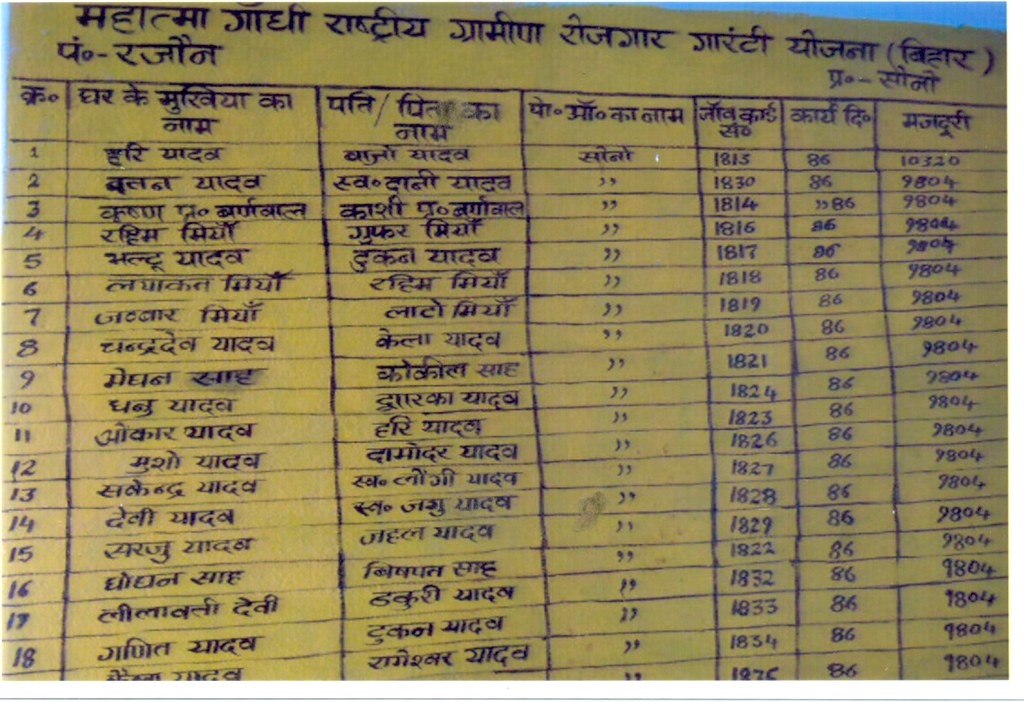 महात्मा गाँधी राष्ट्रीय ग्रामीण रोजगार गारंटी योजना (बिहार)
पं०-रजौन
प्र०-सोनो
क्र० घर के मुखिया का नाम पति/पिता का नाम पो० ऑ० का नाम जॉब कार्ड सं० कार्य दि० मजदूरी
1 हरि यादव वाजो यादव सोनो 1815 86 10320
2 वतन यादव स्व० दानी यादव ,, 1830 86 9804
3 कृष्ण प्र० बर्णवाल काशी प्र० बर्णवाल ,, 1814 ,, 86 9804
4 रहिम मियाँ गुफर मियाँ ,, 1816 86 9804
5 भल्टू यादव टुकन यादव ,, 1817 86 9804
6 लयाकत मियाँ रहिम मियाँ ,, 1818 86 9804
7 जब्बार मियाँ लाटो मियाँ ,, 1819 86 9804
8 चन्द्रदेव यादव केला यादव ,, 1820 86 9804
9 मेघन साह कोकील साह ,, 1821 86 9804
10 धनु यादव द्वारका यादव ,, 1824 86 9804
11 ओकार यादव हरि यादव ,, 1823 86 9804
12 मुशो यादव दामोदर यादव ,, 1826 86 9804
13 सकेन्द्र यादव स्व० लोंगी यादव ,, 1827 86 9804
14 देवी यादव स्व० जशु यादव ,, 1828 86 9804
15 सरजु यादव जहल यादव ,, 1829 86 9804
16 घोघन साह बिषपत साह ,, 1822 86 9804
17 लीलावती देवी डकुरी यादव ,, 1832 86 9804
18 गणित यादव टुकन यादव ,, 1833 86 9804
यादव रामेश्वर यादव ,, 1834 86 9804